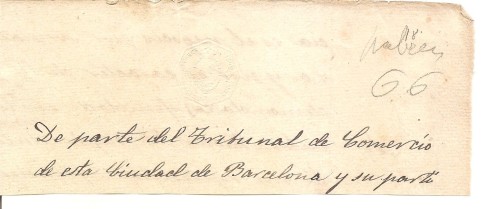 66
De parte del Tribunal de Comercio
de esta Ciudad de Barcelona y su parti